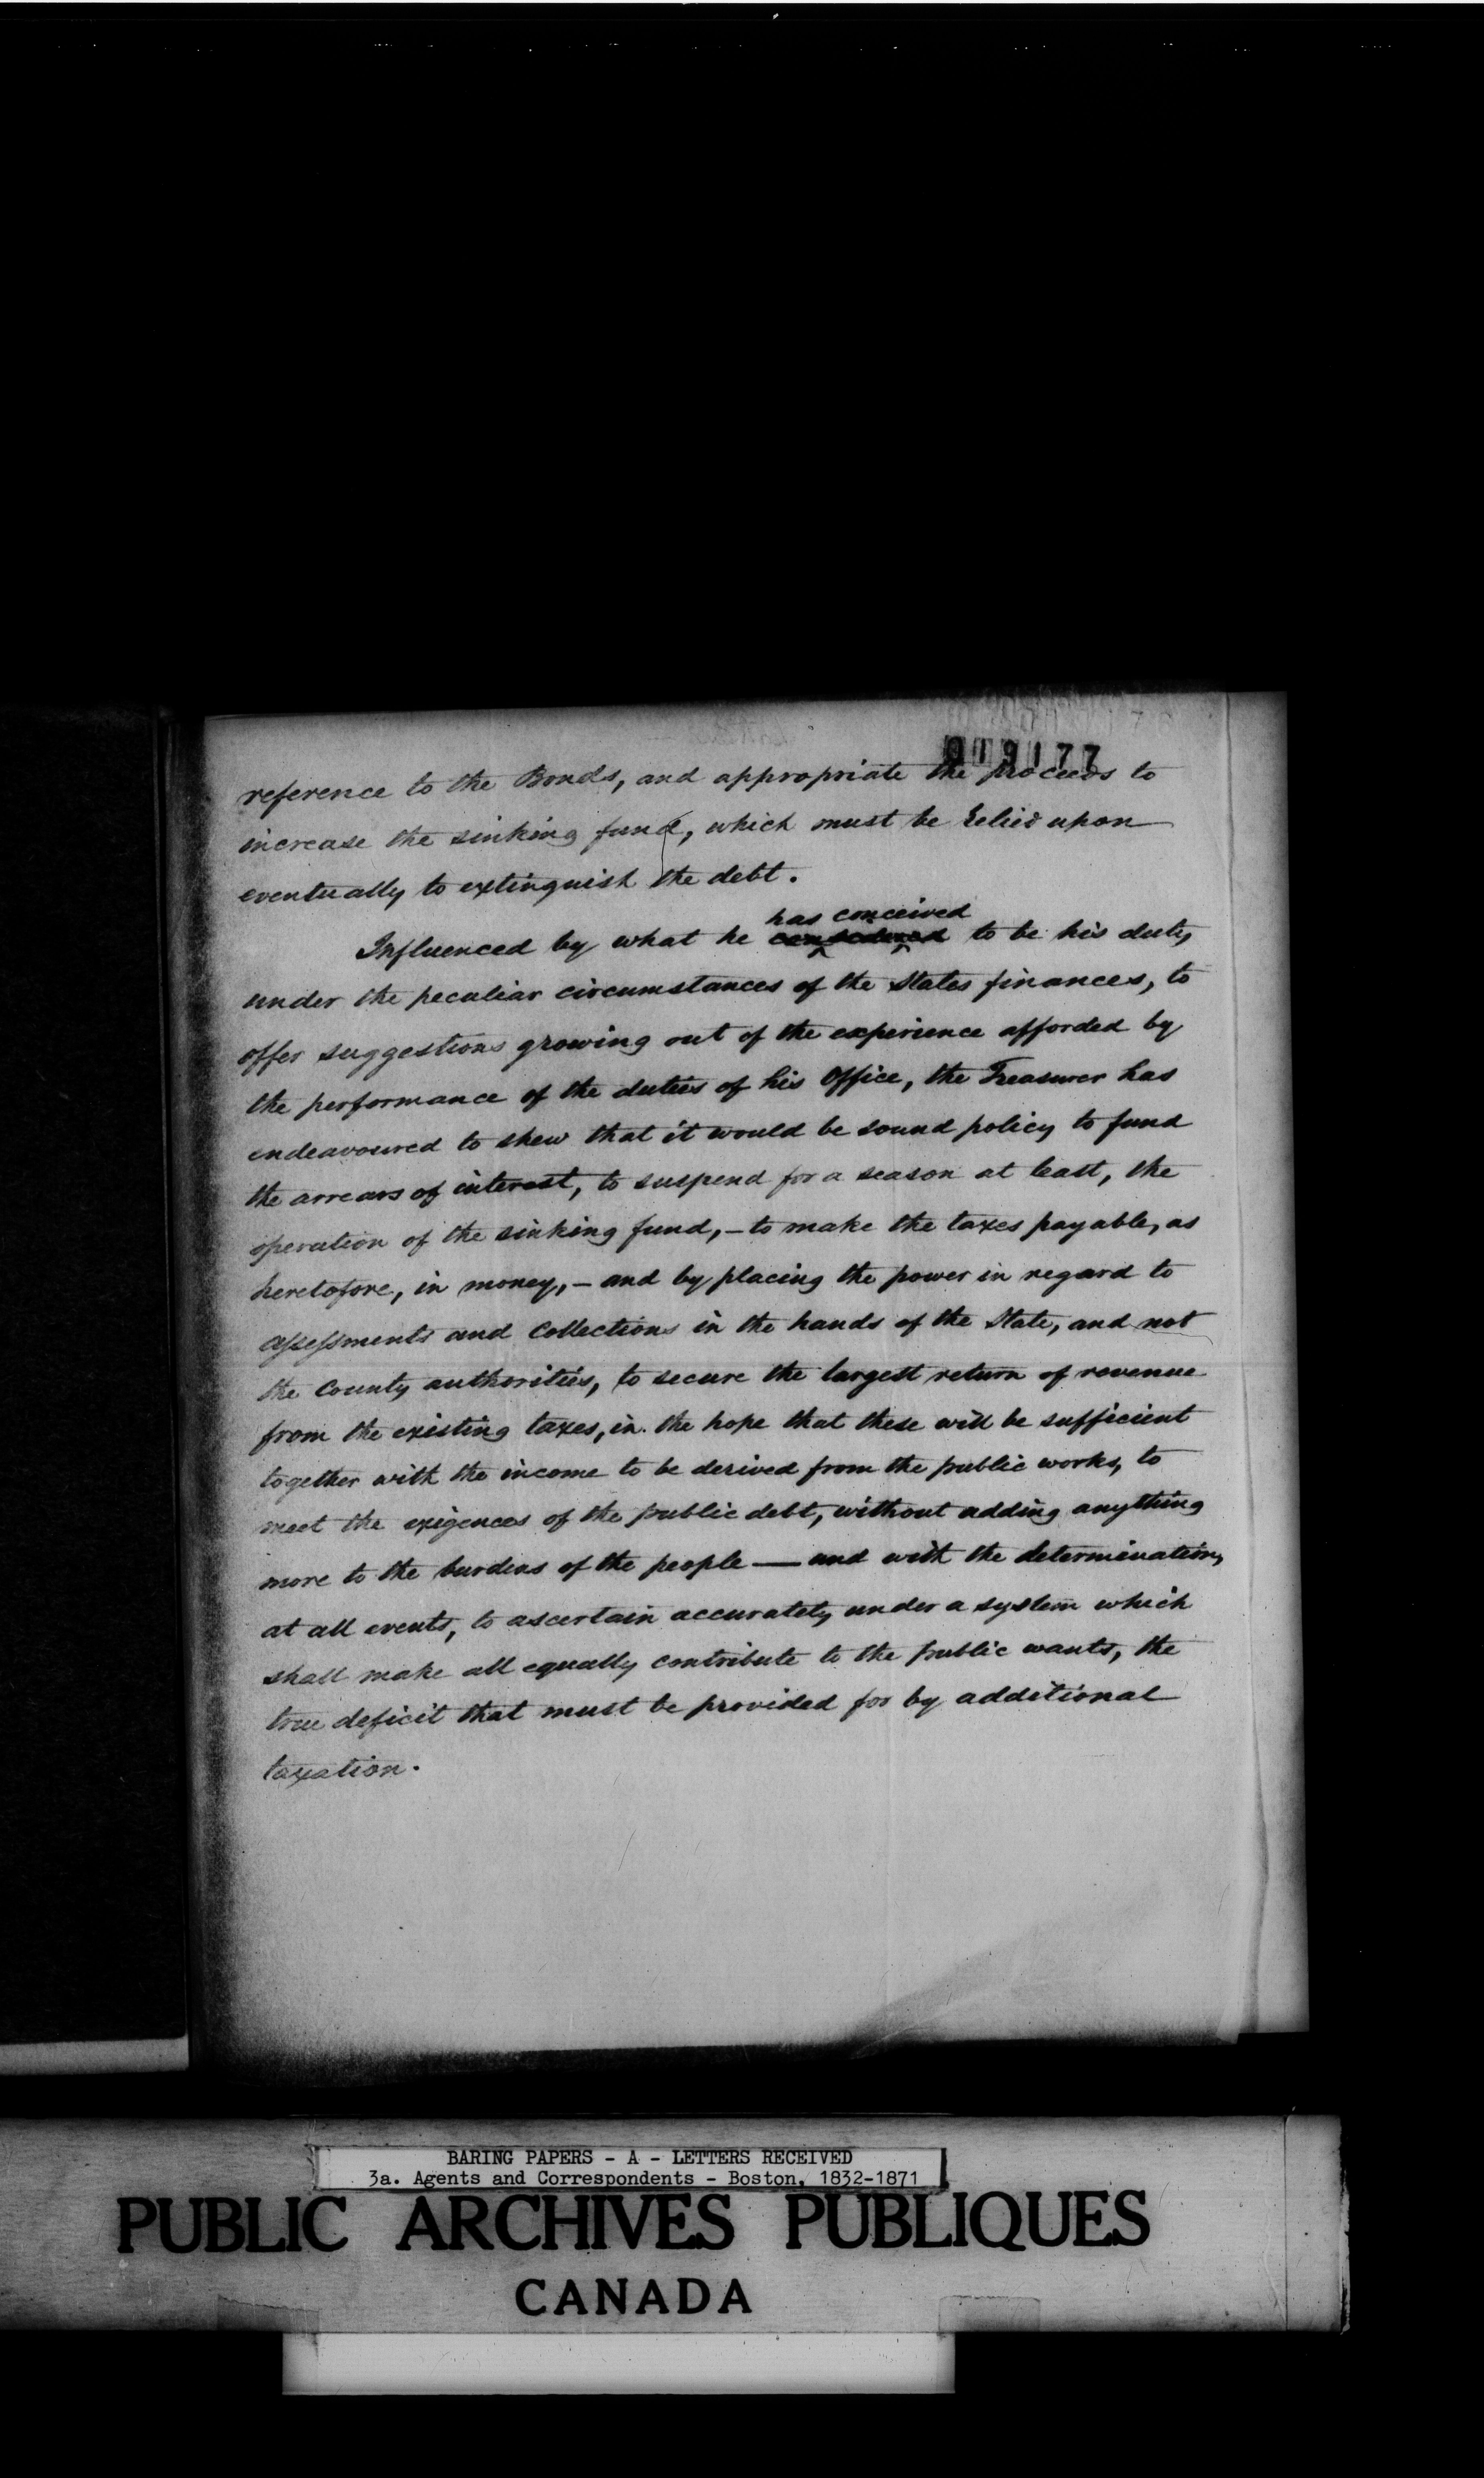 019177
reference to the Bonds, and appropriate the proceeds to
increase the sinking fund, which must be relied upon
eventually to extinguish the debt.
has conceived
Influenced by what he considered to be his duty
under the peculiar circumstances of the States finances, to
offer suggestions growing out of the experience afforded by
the performance of the duties of his Office, the Treasurer has
endeavoured to shew that it would be sound policy to fund
the arrears of interest, to suspend for a season at least, the
operation of the sinking fund, – to make the taxes payable, as
heretofore, in money, – and by placing the power in regard to
assessments and Collections in the hands of the State, and not
the County authorities, to secure the largest return of revenue
from the existing taxes, in the hope that these will be sufficient
together with the income to be derived from the public works, to
meet the exigences of the public debt, without adding anything
more to the burdens of the people — and with the determination,
at all events, to ascertain accurately under a system which
shall make all equally contribute to the public wants, the
true deficit that must be provided for by additional
taxation.
BARING PAPERS - A - LETTERS RECEIVED
3a. Agents and Correspondents - Boston, 1832-1871
PUBLIC ARCHIVES PUBLIQUES
CANADA